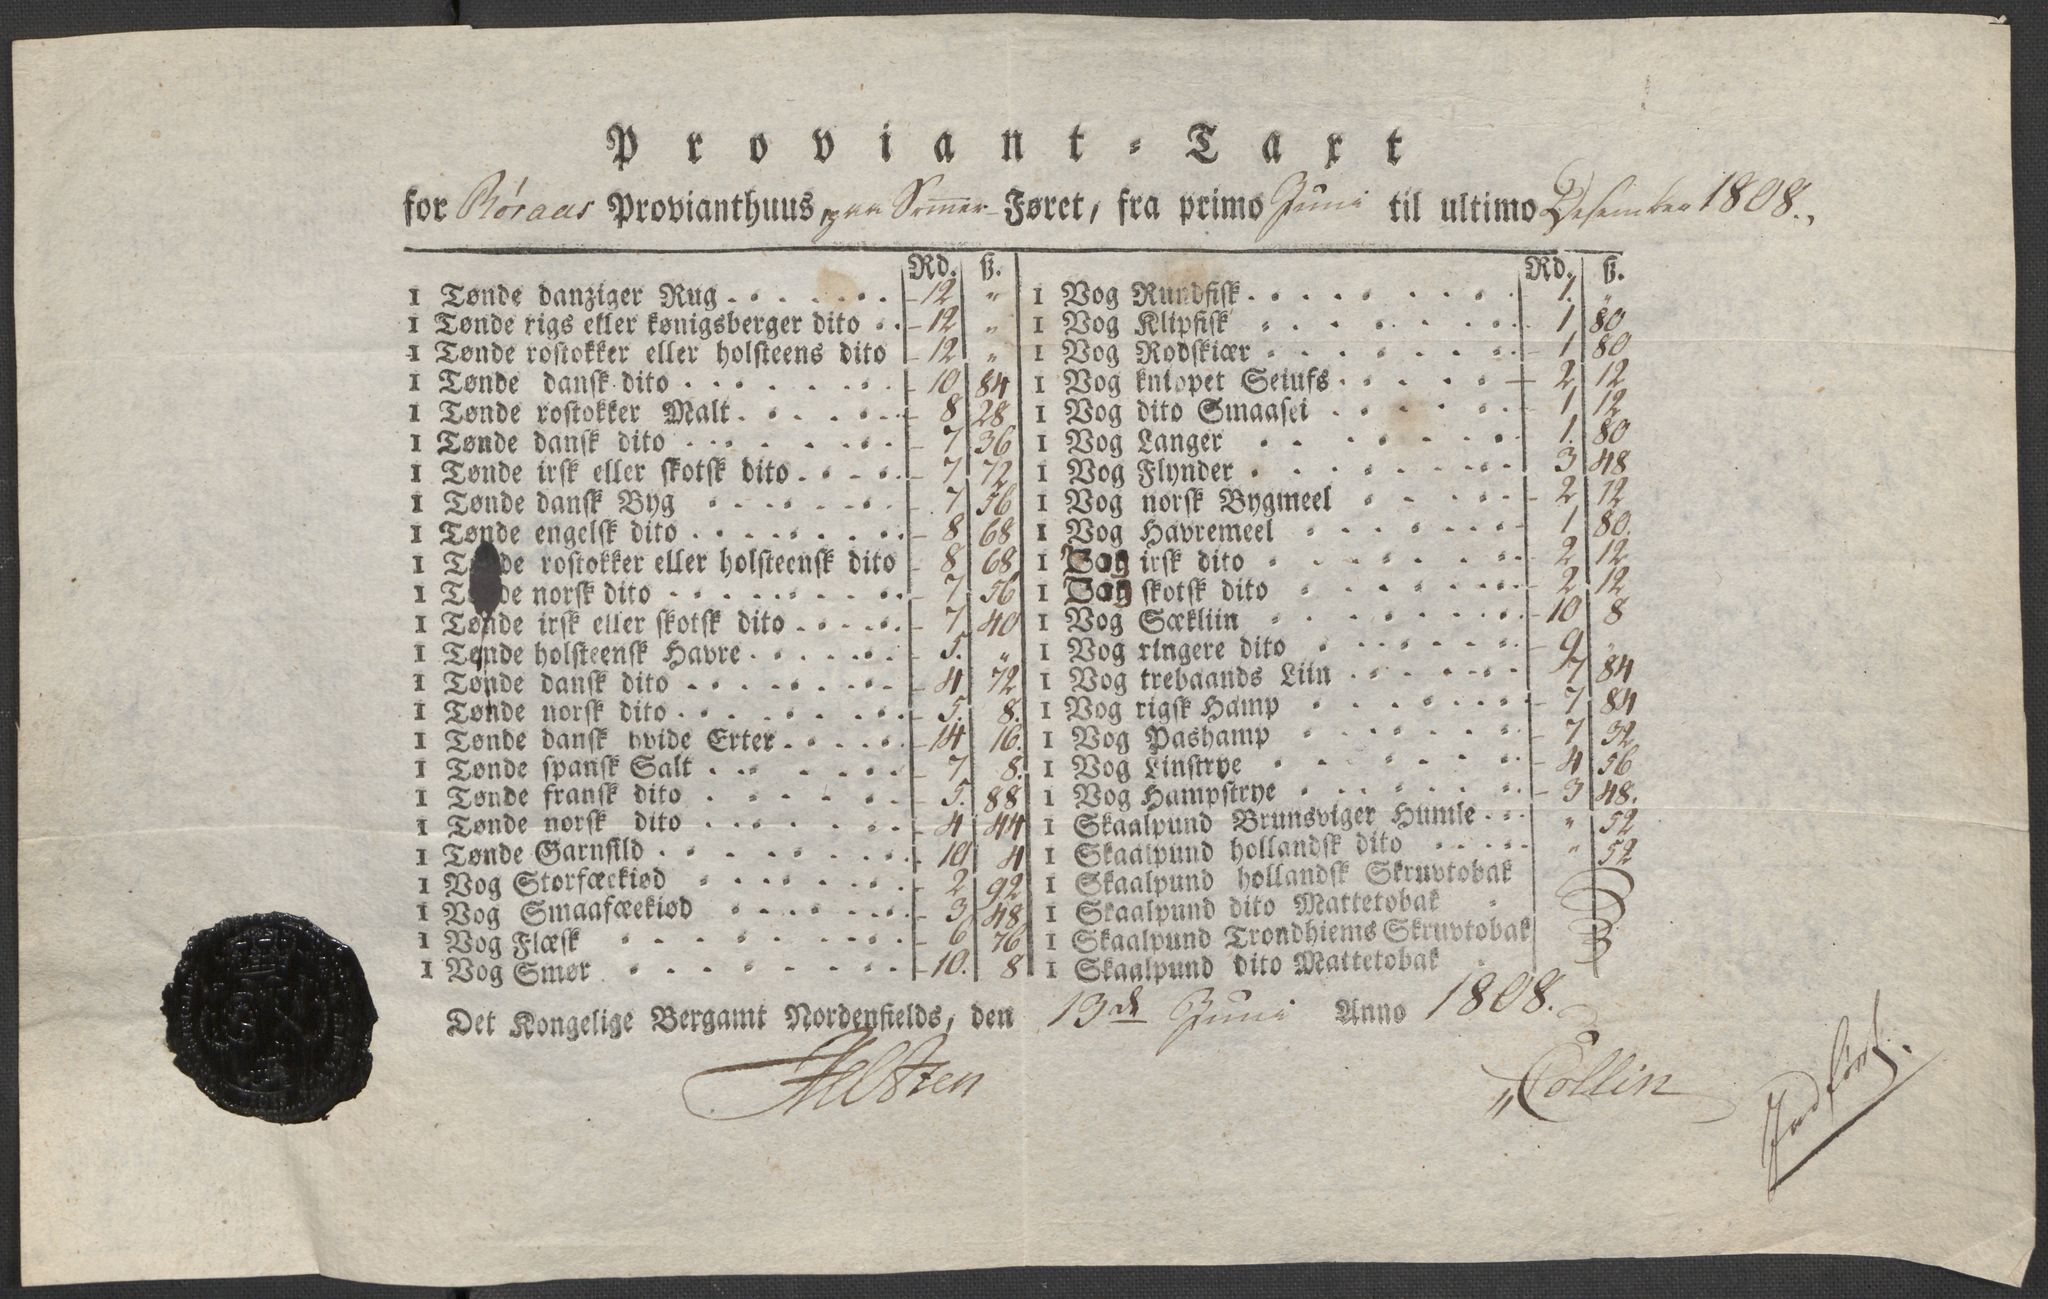 Proviant-Taxt
for Røraas Provianthuus, paa Somer-Føret, fra primo Juni til ultimo Desember 1808.
Rd. ß.
1 Tønde danziger Rug 12 "
1 Tønde rigs eller kønigsberger dito 12 "
1 Tønde rostokker eller holsteens dito 12 "
1 Tønde dansk dito 10 84
1 Tønde rostokker Malt 8 28
1 Tønde dansk dito 7 36
1 Tønde irsk eller skotsk dito 7 72
1 Tønde dansk Byg 7 56
1 Tønde engelsk dito 8 68
1 Tønde rostokker eller holsteensk dito 8 68
1 Tønde norsk dito 7 56
1 Tønde irsk eller skotsk dito 7 40
1 Tønde holsteensk Havre 5. "
1 Tønde dansk dito 4 72
1 Tønde norsk dito 5. 8.
1 Tønde dansk hvide Erter 14 16.
1 Tønde spansk Salt 7 8.
1 Tønde fransk dito 5. 88
1 Tønde norsk dito 4 44
1 Tønde Garnsild 10 4
1 Vog Storfæekiød 2 92
1 Vog Smaafæekiød 3 48
1 Vog Flæsk 6 76
1 Vog Smør 10. 8
Rd. ß.
1 Vog Rundfisk 1. "
1 Vog Klipfisk 1 80
1 Vog Rodskiær 1 80
1 Vog knippet Seiufs 2 12
1 Vog dito Smaasei 1 12
1 Vog Langer 1. 80
1 Vog Flynder 3 48
1 Vog norsk Bygmeel 2 12
1 Vog Havremeel 1 80.
1 Vog irsk dito 2 12
1 Vog skotsk dito 2 12
1 Vog Sækliin 10 8
1 Vog ringere dito 9 "
1 Vog trebaands Liin 7 84
1 Vog rigsk Hamp 7 84
1 Vog Pashamp 7 32
1 Vog Linstrye 4 56
1 Vog Hampstrye 3 48.
1 Skaalpund Brunsviger Humle " 52
1 Skaalpund hollandsk dito " 52
1 Skaalpund hollandsk Skruvtobak
1 Skaalpund dito Mattetobak
1 Skaalpund Trondhiems Skruvtobak
1 Skaalpund dito Mattetobak
Det Kongelige Bergamt Nordenfields, den 13de Juni Anno 1808.
Collin
Indført.